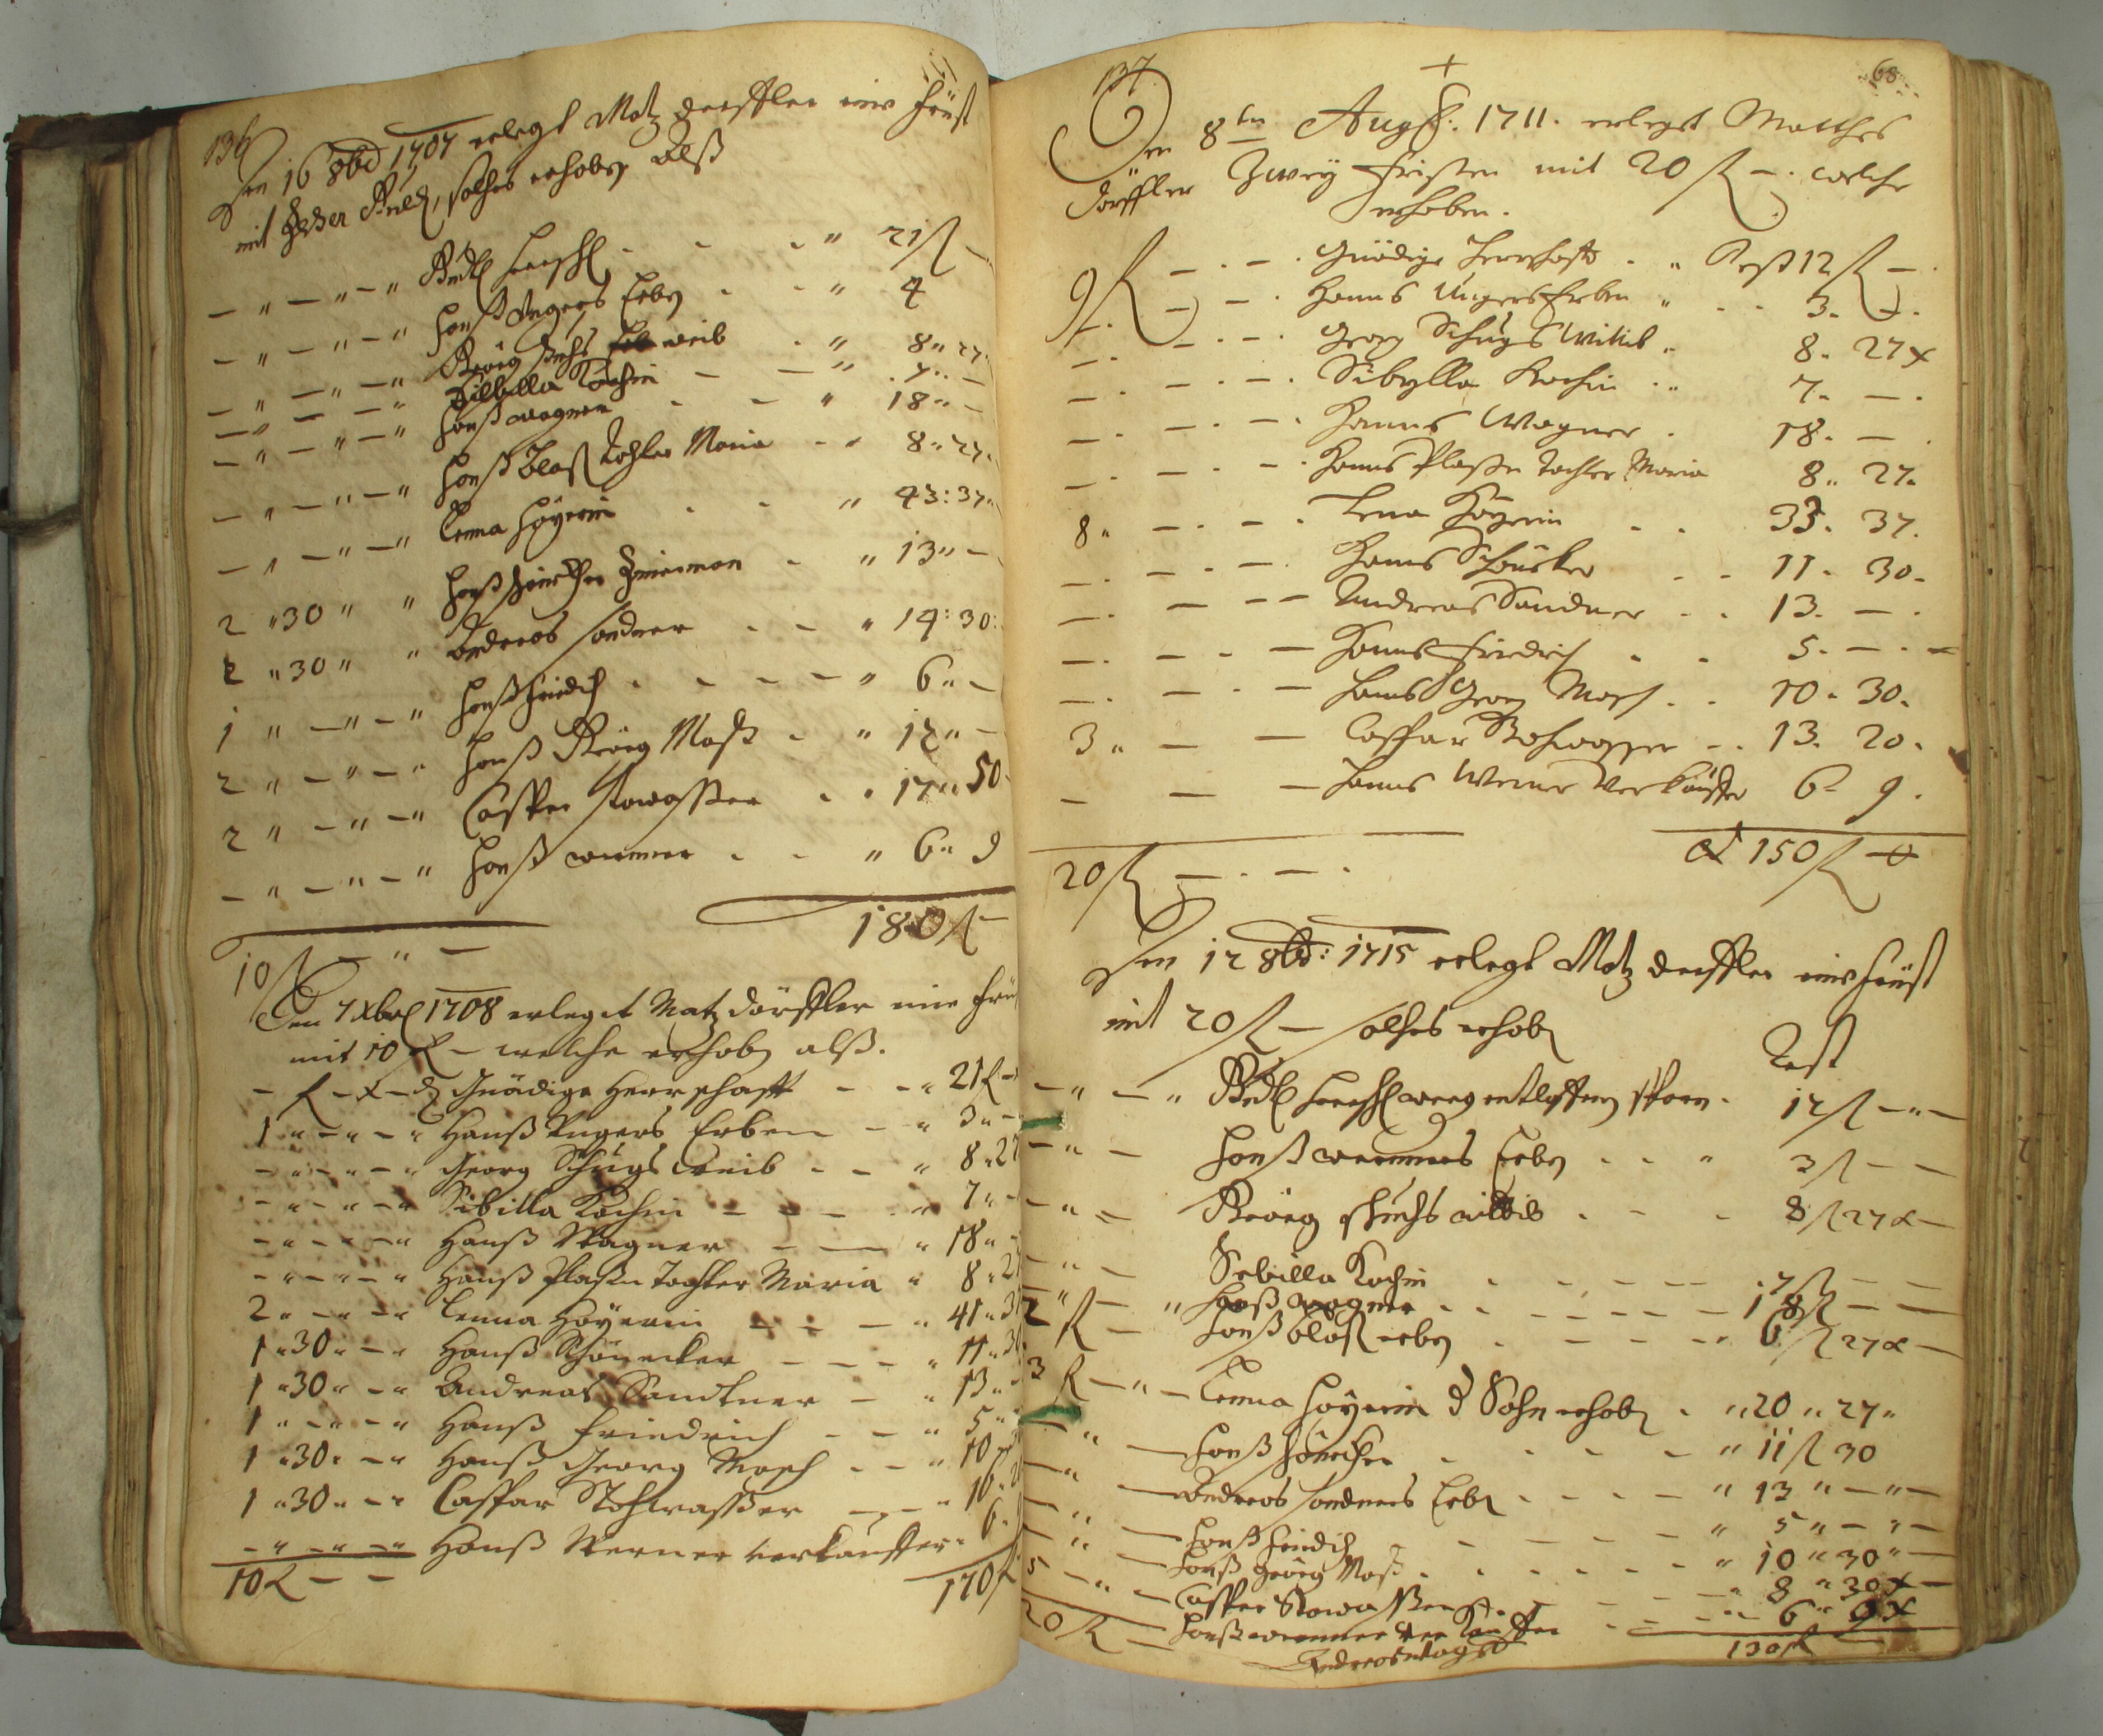 136
Den 16 8br 1707 erlegt Matz derffler eine früst
mit 10 fl, solches erhoben Alß
— " — " — " Gnedl herrschl - - - " 21 fl —
— " — " — " Hanß Ungers Erben - - " 4
— " — " — " Georg Schugs weib - " 8 " 27
— " — — " Sibilla Kochin — — " 7 " —
— " — " — " Hanß wagner - — " 18 " —
— " — " — " Hanß Blaß Tochter Maria - " 8 " 27
— " — " — " Lenna Höyerin - - " 43 : 37
2 " 30 " " Hanß Zimerman - " 13 " —
2 " 30 " " Andreas sandner - — " 14 : 30
1 " — " — " Hanß friedrich - - — " 6 " —
2 " — " — " Hanß Georg Maß - " 12 " —
2 " — " — " Casper stowasser - " 17 " 50
— " — " — " Hanß werner - - " 6 " 9
10 fl — " — 180 fl —
Den 7 xbris 1708 erleget Matz dörffler eine frü
mit 10 fl — welche erhoben alß.
— fl — x — d Gnädige Herrschafft — - " 21 fl —
1 " — " — " Hanß Ungers Erben — " 3 " —
— " — " — " Georg Schugs weib - — " 8 " 27
— " — " — " Sibilla Kochin — — — " 7 " —
— " — " — " Hanß Wagner — — " 18 " -
— " — " — " Hanß Plaßn Tochter Maria " 8 " 2
2 " — " — " Lenna Höyerin — — — " 41 " 3
1 " 30 " — " Hanß Schönecker — — — " 11 " 3
1 " 30 " — " Andreas Sandtner — " 13 " -
1 " — " — " Hanß Friedrich — — " 5 "
1 " 30 " — " Hanß Georg Mosch - — " 10
1 " 30 " — " Caspar Stohwasser — — " 16 " 2
— " — " — " Hanß Werner verkauffter " 6 "
10 fl — — 170 fl
137 68
Den 8ten Augst: 1711. erlegt Matthes
Dörffler Zwey fristen mit 20 fl —. welche
erhoben.
9 fl — . — . Gnädige Herrschafft . " Rest 12 fl —.
— . — — . Hanns Ungers Erben " . . 3. —.
— . — . — . Georg Schugs Wittib . 8. 27 x
— . — . — . Sibylla Kochin . " 7. — .
— . — . — . Hanns Wagner . 18. — .
— . — . — . Hanns Plaßn Tochter Maria 8 " 27.
8 " — . — . Lena Höyerin . . 33. 37.
— . — . — Hanns Schönecker . - 11. 30.
— . — — — Andreas Sandner . . 13. — .
— . — - — Hanns Friedrich . . 5. — .
— . — . — Hanns Georg Mosch . . 10. 30.
3 " — — Caspar Stohwasser — . 13. 20.
— — — Hanns Werner Verkäuffer 6. 9.
20 fl — . — . 150 fl —
Den 12 8br: 1715 erlegt Matz derffler eine früst
mit 20 fl — solches erhoben
Rest
— " — " Gnedl herrschl 12 fl — " —
— " — Hanß werners Erben . . " 3 fl — —
— " — Georg schuchs wittib . - - 8 fl 27 x —
— " — Sebilla Kochin . . — — 7 fl — —
— " — " Hanß wagner . . — — — 18 fl — —
2 fl — Hanß blaß erben . — — — 6 fl 27 x —
3 fl — " — Lenna Höyerin d Sohn erhoben . " 20 " 27 "
— " — Hanß . . . — " 11 fl 30
— " — Andreas sandners Erben . - - — " 13 " — " —
— " — Hanß friedrich - — — — " 5 " — " —
— " — Hanß Georg Maß . . . — — " 10 " 30 " —
5 — " — Casper Stowasser . — — — " 8 " 30 x —
20 fl — Hanß werner verkauffter — — " 6 " 9 x
130 fl